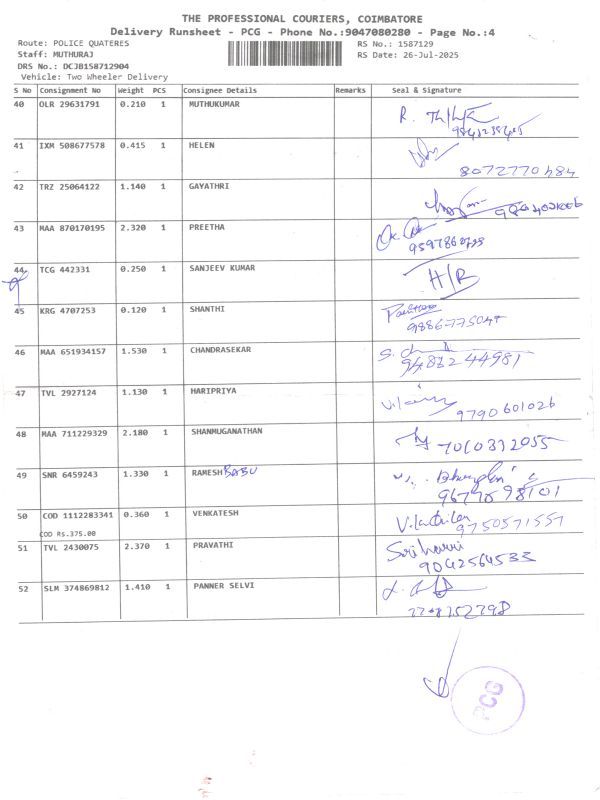 THE PROFESSIONAL COURIERS, COIMBATORE
Delivery Runsheet - PCG - Phone No.:9047080280 - Page No.:4
Route: POLICE QUATERES RS No.: 1587129
Staff: MUTHURAJ RS Date: 26-Jul-2025
DRS No.: DCJB158712904
Vehicle: Two Wheeler Delivery
S No Consignment No Weight PCS Consignee Details Remarks Seal & Signature
40 OLR 29631791 0.210 1 MUTHUKUMAR R.
41 IXM 508677578 0.415 1 HELEN
8072770484
42 TRZ 25064122 1.140 1 GAYATHRI
43 MAA 870170195 2.320 1 PREETHA
44 TCG 442331 0.250 1 SANJEEV KUMAR H/R
45 KRG 4707253 0.120 1 SHANTHI
46 MAA 651934157 1.530 1 CHANDRASEKAR
9486244981
47 TVL 2927124 1.130 1 HARIPRIYA
9790601026
48 MAA 711229329 2.180 1 SHANMUGANATHAN
49 SNR 6459243 1.330 1 RAMESH BABU
50 COD 1112283341 0.360 1 VENKATESH
9750571557
COD Rs.375.00
51 TVL 2430075 2.370 1 PRAVATHI
9042564533
52 SLM 374869812 1.410 1 PANNER SELVI
PCG